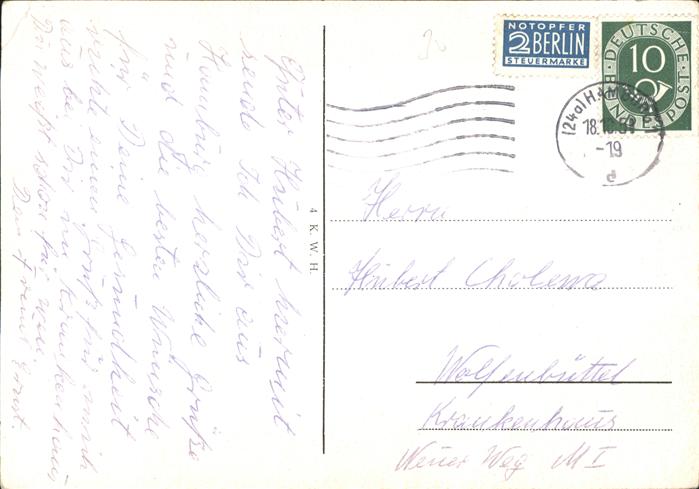 Guter Hubert hiermit
sende ich Dir aus
Hamburg herzliche Grüße
und die besten Wünsche
für Deine Gesundheit
einen Gruß für mich
aus bei Dir im Krankenhaus,
Du weißt schon für wen.
Dein Freund Ernst
4 K. W. H.
NOTOPFER
2 BERLIN
STEUERMARKE
DEUTSCHE
BUNDESPOST
10
(24a) HAMBURG
-19
d
Herrn
Hubert Cholewa
Wolfenbüttel
Krankenhaus
Neuer Weg M I